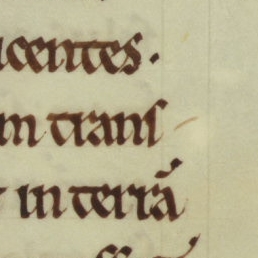 centes.
m tranſ-
in terrã